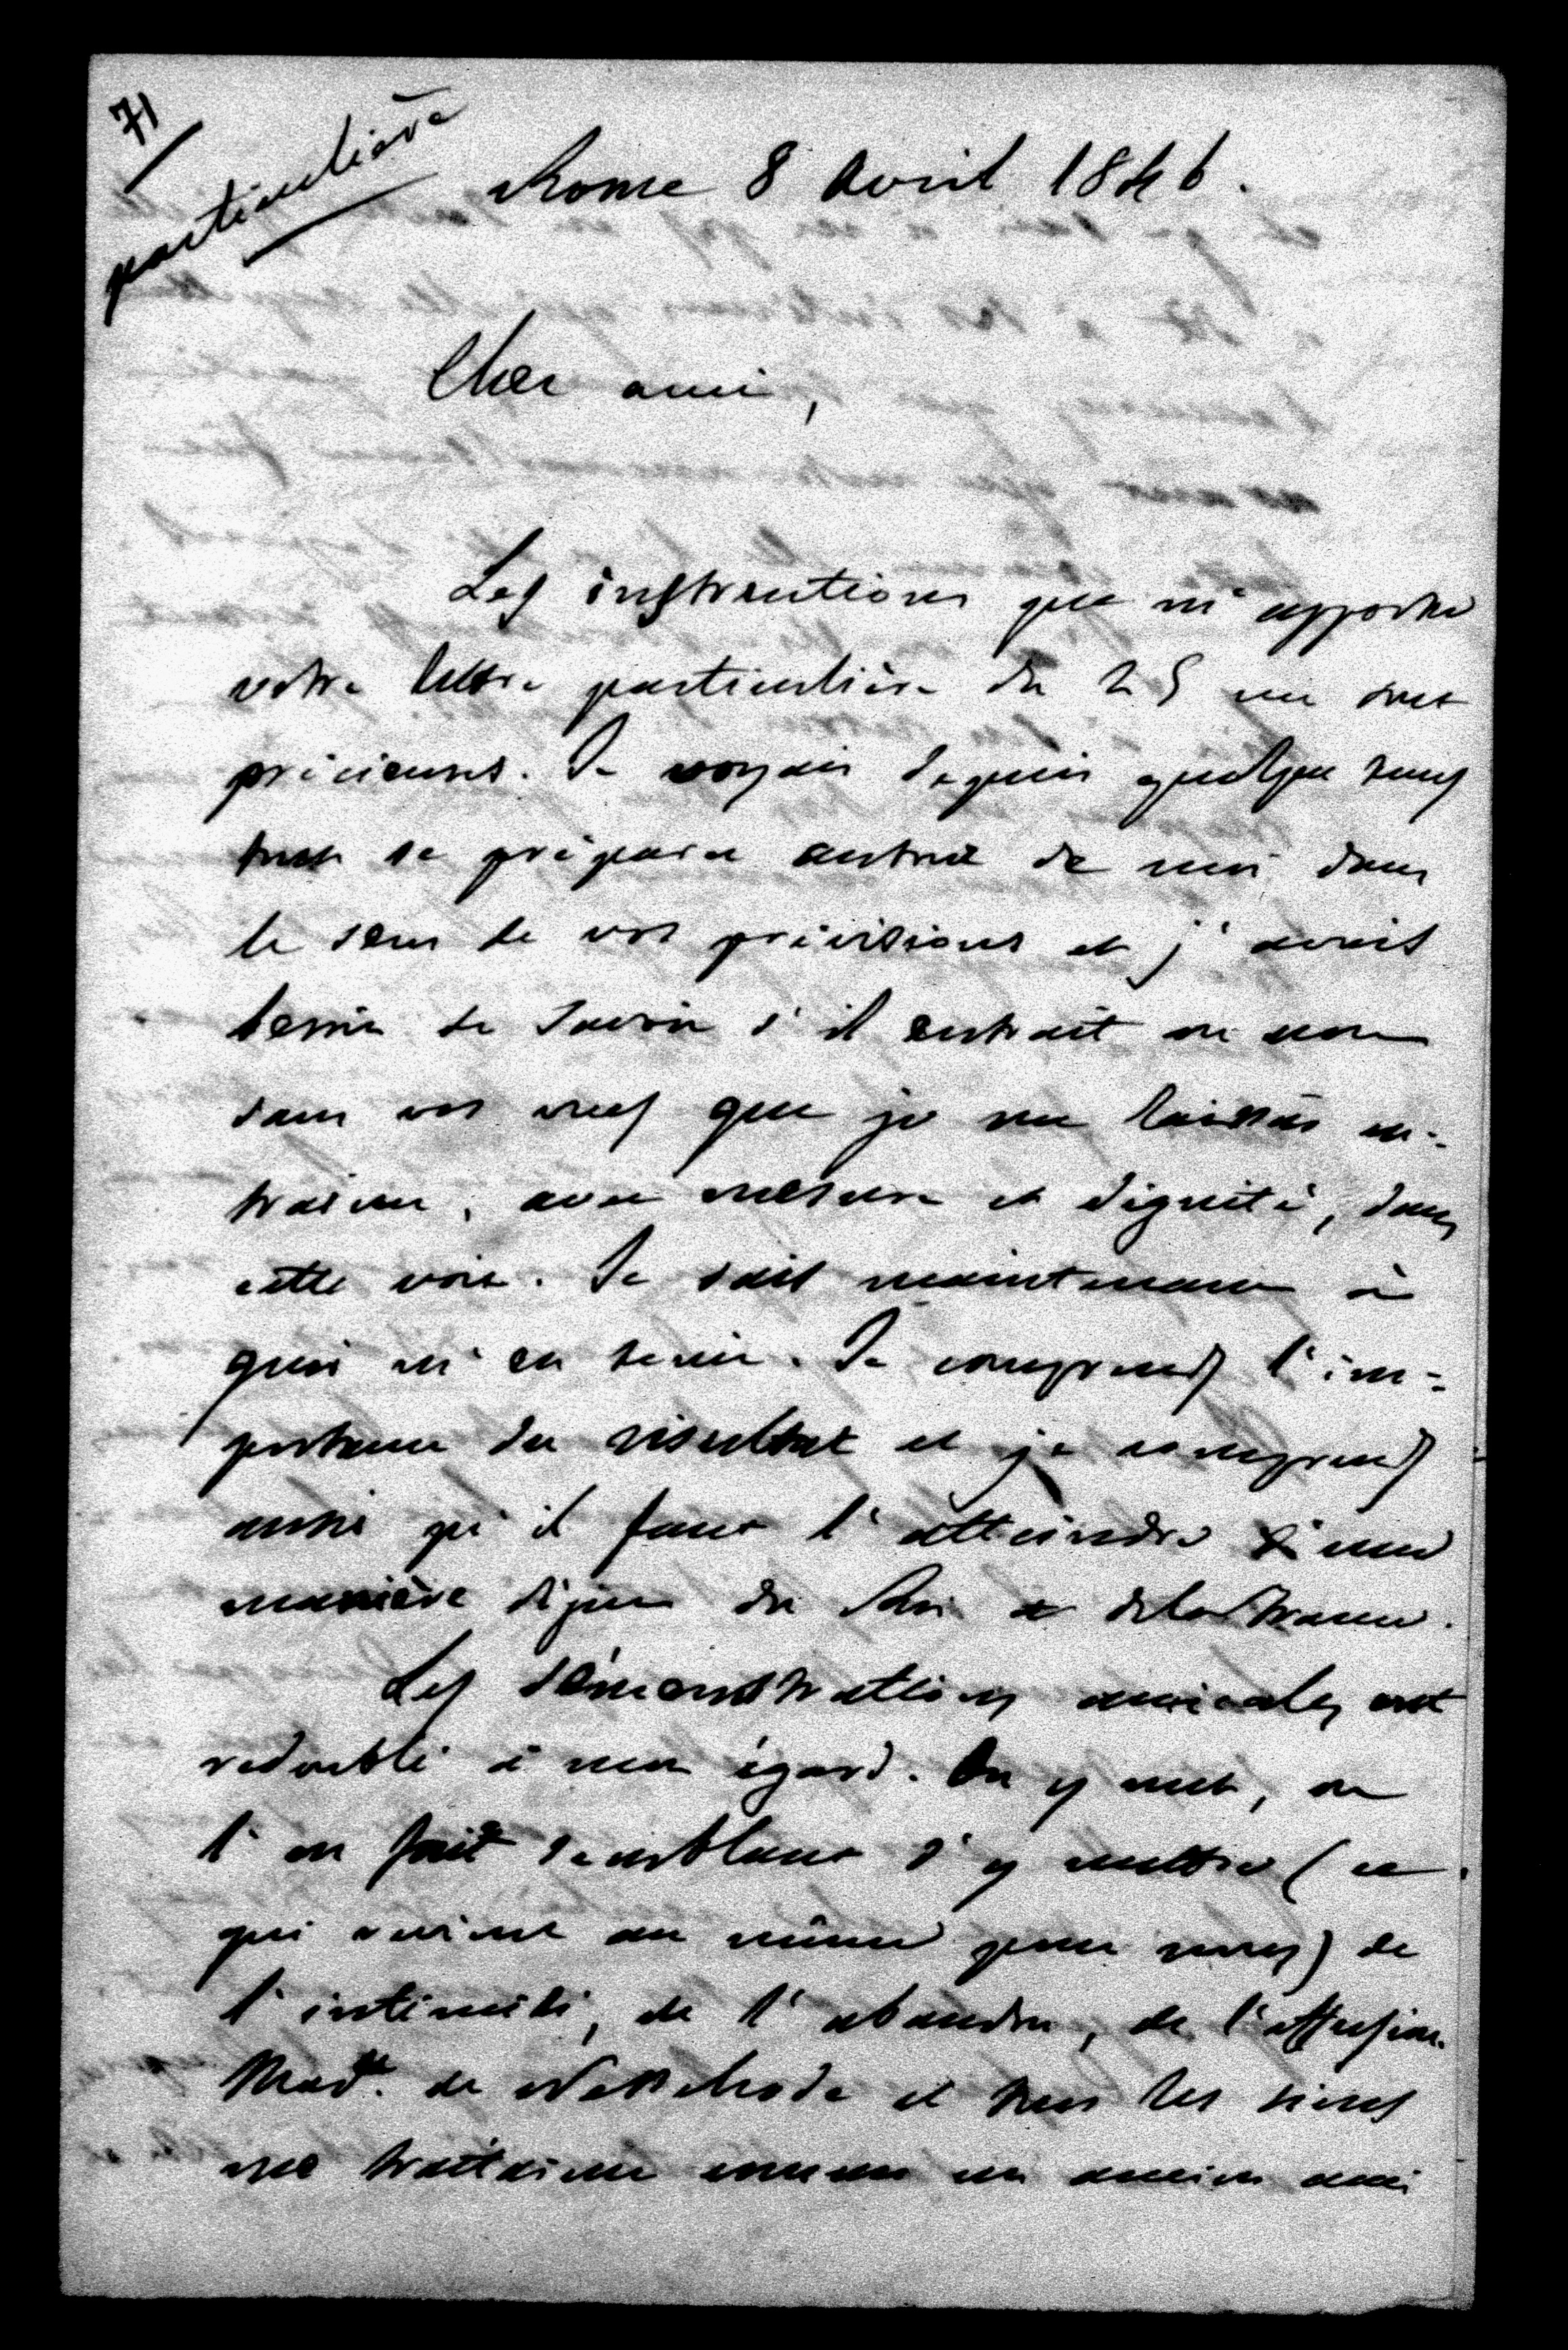 71
particulière
Rome 8 Avril 1846.
Cher ami,
Les instructions que m'apporte
votre lettre particulière du 25 me sont
précieuses. Je voyais depuis quelque temps
tout se préparer autour de moi dans
le sens de vos prévisions et j'avais
besoin de savoir s'il entrait ou non
dans vos vues que je me laissas en-
trainer, avec mesure et dignité, dans
cette voie. Je sais maintenant à
quoi m'en tenir. Je comprends l'im-
portance du résultat et je comprends
aussi qu'il faut l'atteindre d'une
manière digne du Roi et de la France.
Les démonstrations amicales ont
redoublé à mon égard. On y met, ou
l'on fait semblant d'y mettre (ce
qui revient au même pour nous) de
l'intimité, de l'abandon, de l'effusion.
Mad.e de Nesselrode et tous les siens
me traitaient comme un ancien ami